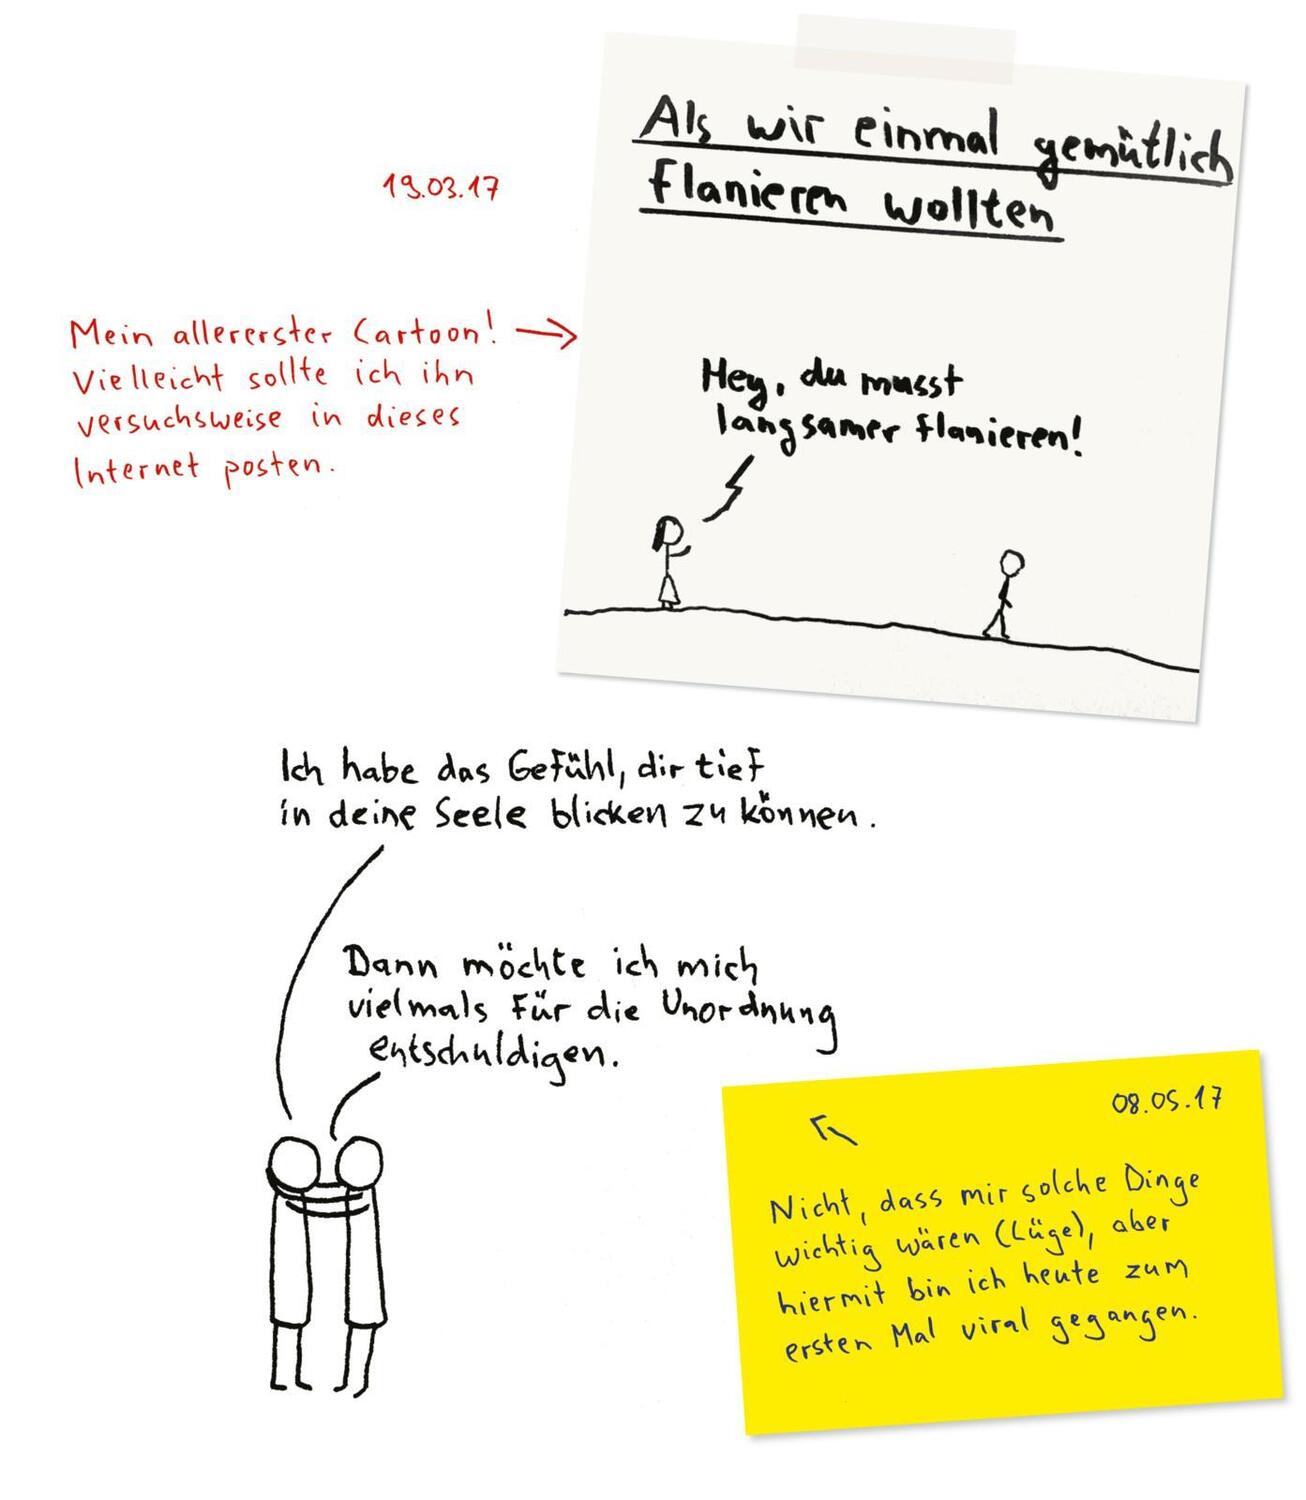 19.03.17
Mein allererster Cartoon!
Vielleicht sollte ich ihn
versuchsweise in dieses
Internet posten.
Als wir einmal gemütlich
flanieren wollten
Hey, du musst
langsamer flanieren!
Ich habe das Gefühl, dir tief
in deine Seele blicken zu können.
Dann möchte ich mich
vielmals für die Unordnung
entschuldigen.
08.05.17
Nicht, dass mir solche Dinge
wichtig wären (Lüge), aber
hiermit bin ich heute zum
ersten Mal viral gegangen.